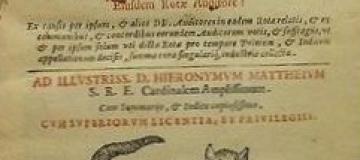 Eiusdem Rotæ Auditore.
Ex causis per ipsum, & alios DD. Auditores in eadem Rota relatis, & ex
communibus, & concordibus eorundem Auditorum votis, & suffragijs, vt
& per ipsum solum vti dictæ Rotæ pro tempore Primum, &
appellationum Iudicem, summa cura singulariq; industria collecta.
AD ILLVSTRISS. D. HIERONYMVM MATTHEIVM
S. R. E. Cardinalem Amplissimum.
Cum Summarijs, & Indice copiosissimo.
CVM SVPERIORVM LICENTIA, ET PRIVILEGIIS.